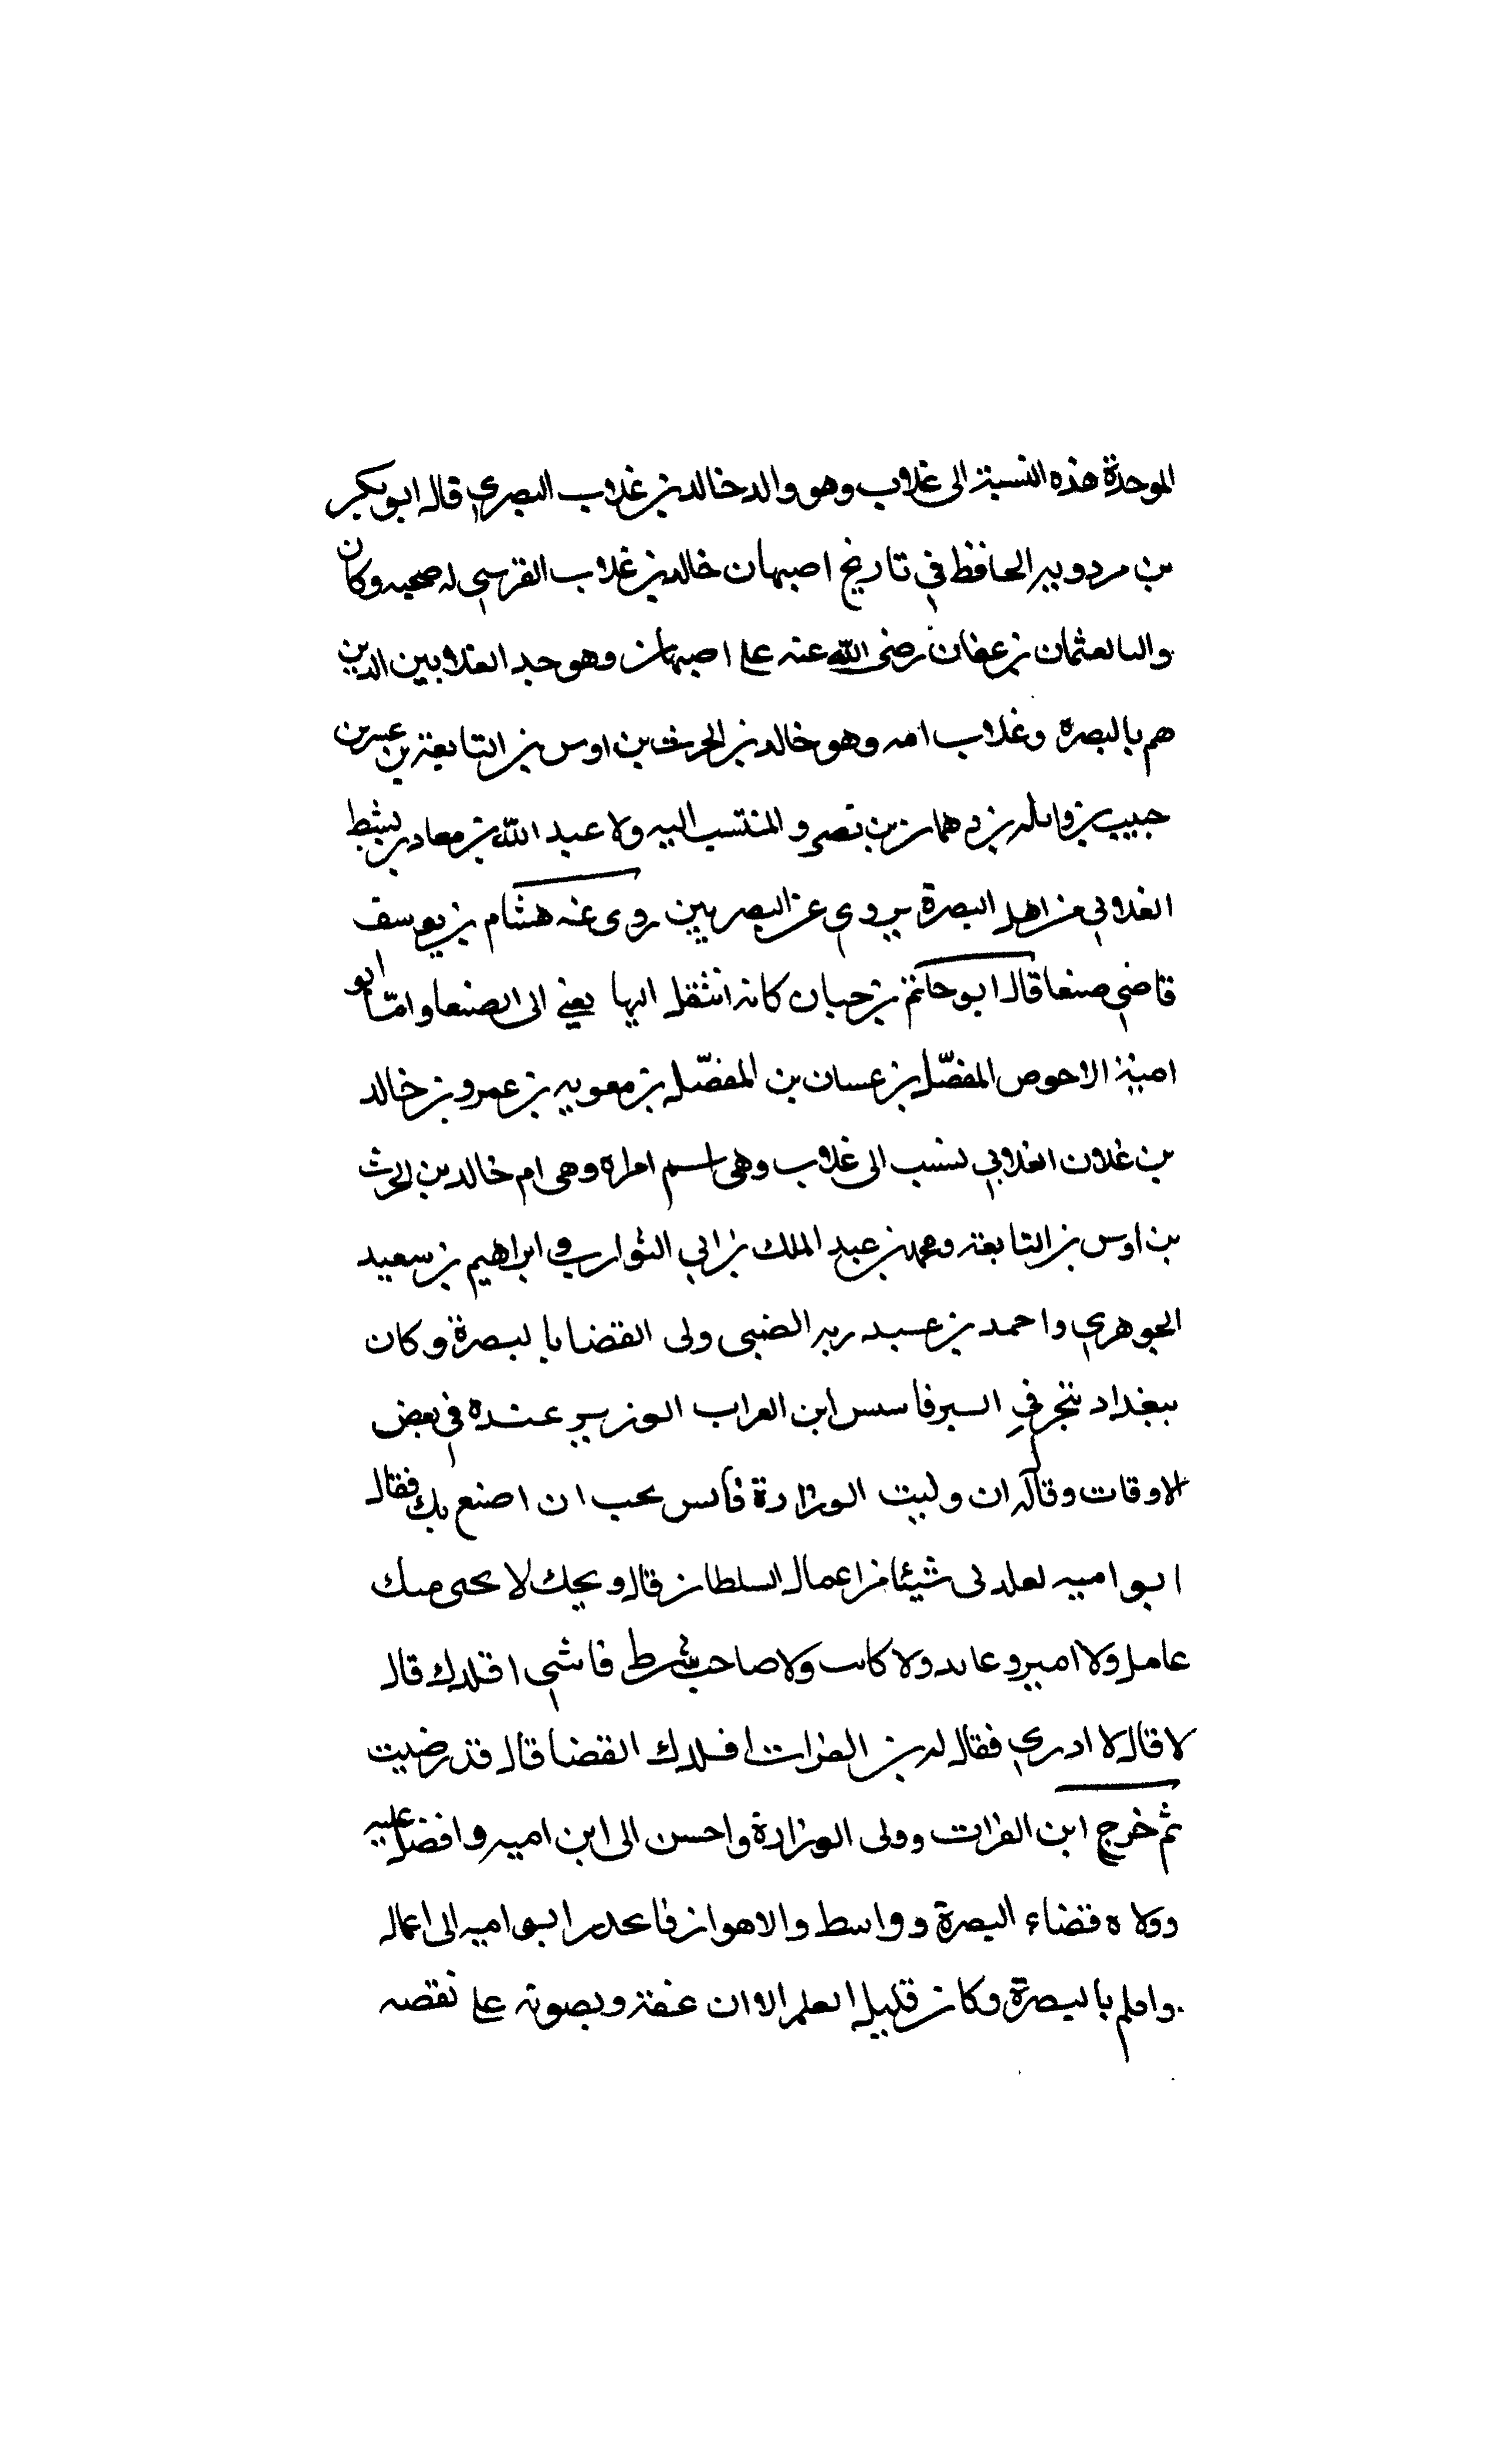 الموحدة هذه النسبة الى غلاب وهو والد خالد بن غلاب البصري قال ابو بكر
بن مردويه الحافظ في تاريخ اصبهان خالد بن غلاب القرسي له صحبه وكان
واليا لعثمان بن عفان رضى الله عنه على اصبهان وهو جد الغلابين الذين
هم بالبصرة وغلاب امه وهو خالد بن الحرث بن اوس بن النابغة بن
حبيب بن وائله بن دهمان بن نصر و المنتسب اليه ولا عبد الله بن معاد بن
الغلابي من اهل البصرة يروي عن البصريين روى عنه هشام بن يوسف
قاضي صنعا قال ابو حاتم بن حبان كانه انتقل اليها يعني الى الصنعا واما ابو
امية الاحوص المفضّل بن عسان بن المفضّل بن معويه بن عمرو بن خالد
بن غلان الغلابي نسب الى غلاب وهى اسم امراة وهى ام خالد بن الحرث
بن اوس بن النابغة ومحمد بن عبد الملك بن ابي الشوارب و ابراهيم بن سعيد
الجوهري واحمد بن الضبى ولى القضا بالبصرة وكان
ببغداد يتجر في البر ابن الفرات الوزير عنده في بعض
الاوقات وقال له ان وليت الوزارة تحب ان اصنع بك فقال
ابو اميه لى شيئا من اعمال السلطان قال ويحك لا يجى منك
عامل ولا امير و ولا كاتب ولا صاحب شرط فاشى اقلدك قال
لا قال لا ادري فقال له بن الفرات اقلدك القضا قال قد رضيت
ثم خرج ابن الفرات وولى الوزارة واحسن الى ابن اميه وافضل عليه
وولاه قضاء البصرة و واسط والاهواز فانحدر ابو اميه الى اعماله
واقام بالبصرة وكان قليل العلم الا ان عفته وتصونه على نقصه